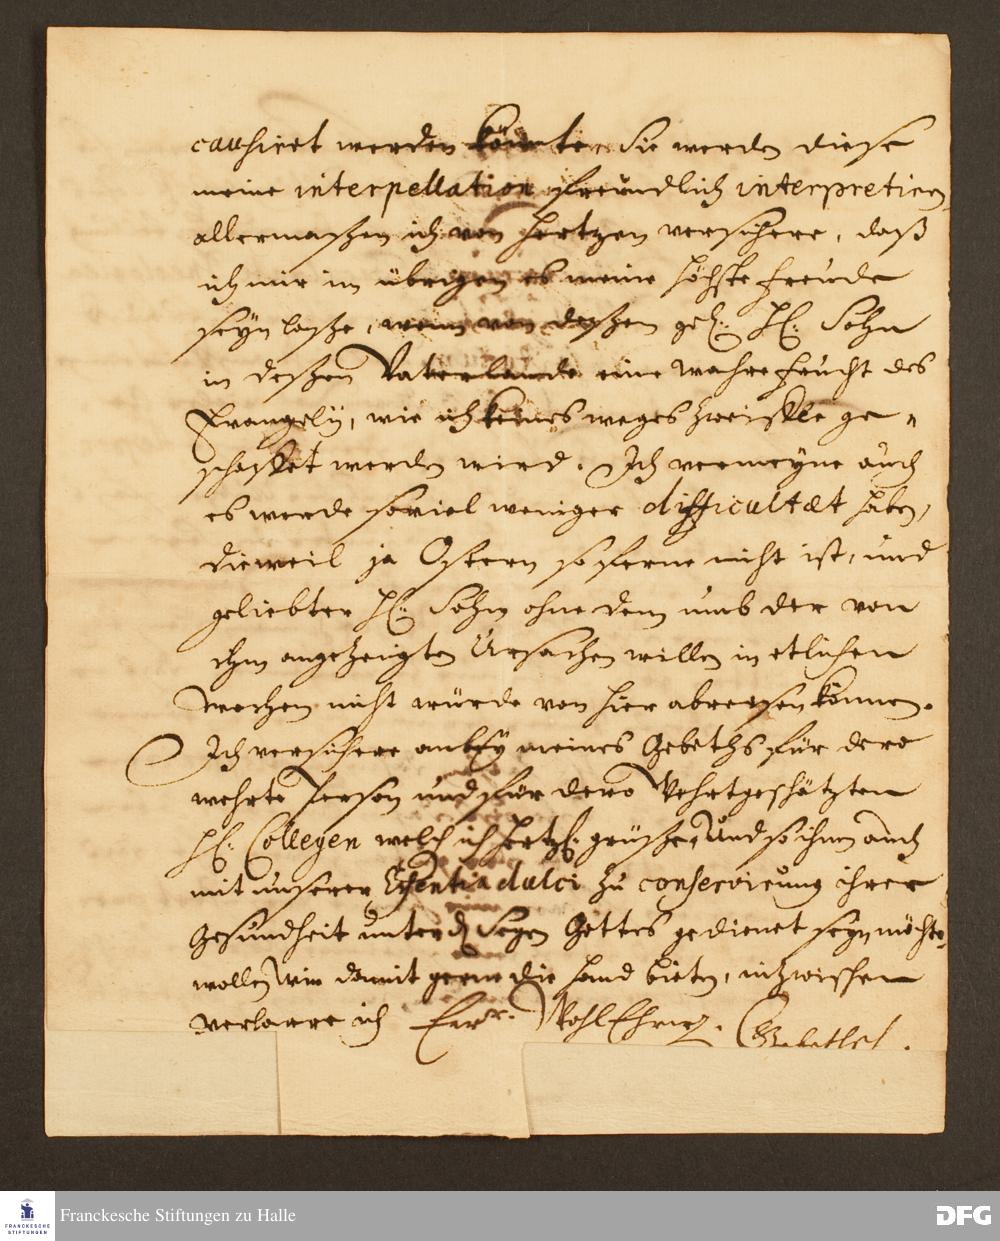 causiret werden könte. Sie werden diese
meine interpellation freündlich interpretiren,
allermaßen ich von Hertzen versichere, daß
ich mir im übrigen es meine höchste Freude
seyn laße, wenn von deßen gel. H. Sohn
in deßen Vaterlande eine wahre Frucht des
Evangelij, wie ich keines weges zweiffle ge-
schaffet werden wird. Ich vermeyne auch
es werde soviel weniger difficultæt haben,
dieweil ja Ostern so ferne nicht ist, und
geliebter H. Sohn ohne dem umb der von
ihm angezeigten Ursachen willen in etlichen
Wochen nicht würde von hier abreysen können.
Ich versichere anbey meines Gebeths für dero
wehrte Person und für dero Wehrtgeschätzten
H. Collegen welch ich hertzl. grüße, Und so ihnen auch
mit unserer Essentia dulci zu conservirung ihrer
Gesundheit unter d. Segen Gottes gedienet seyn möchte,
wollen wir damit gerne die Hand bieten, inzwischen
verharre ich Ew. WohlEhrw.
Franckesche Stiftungen zu Halle
FRANCKESCHE
STIFTUNGEN
DFG